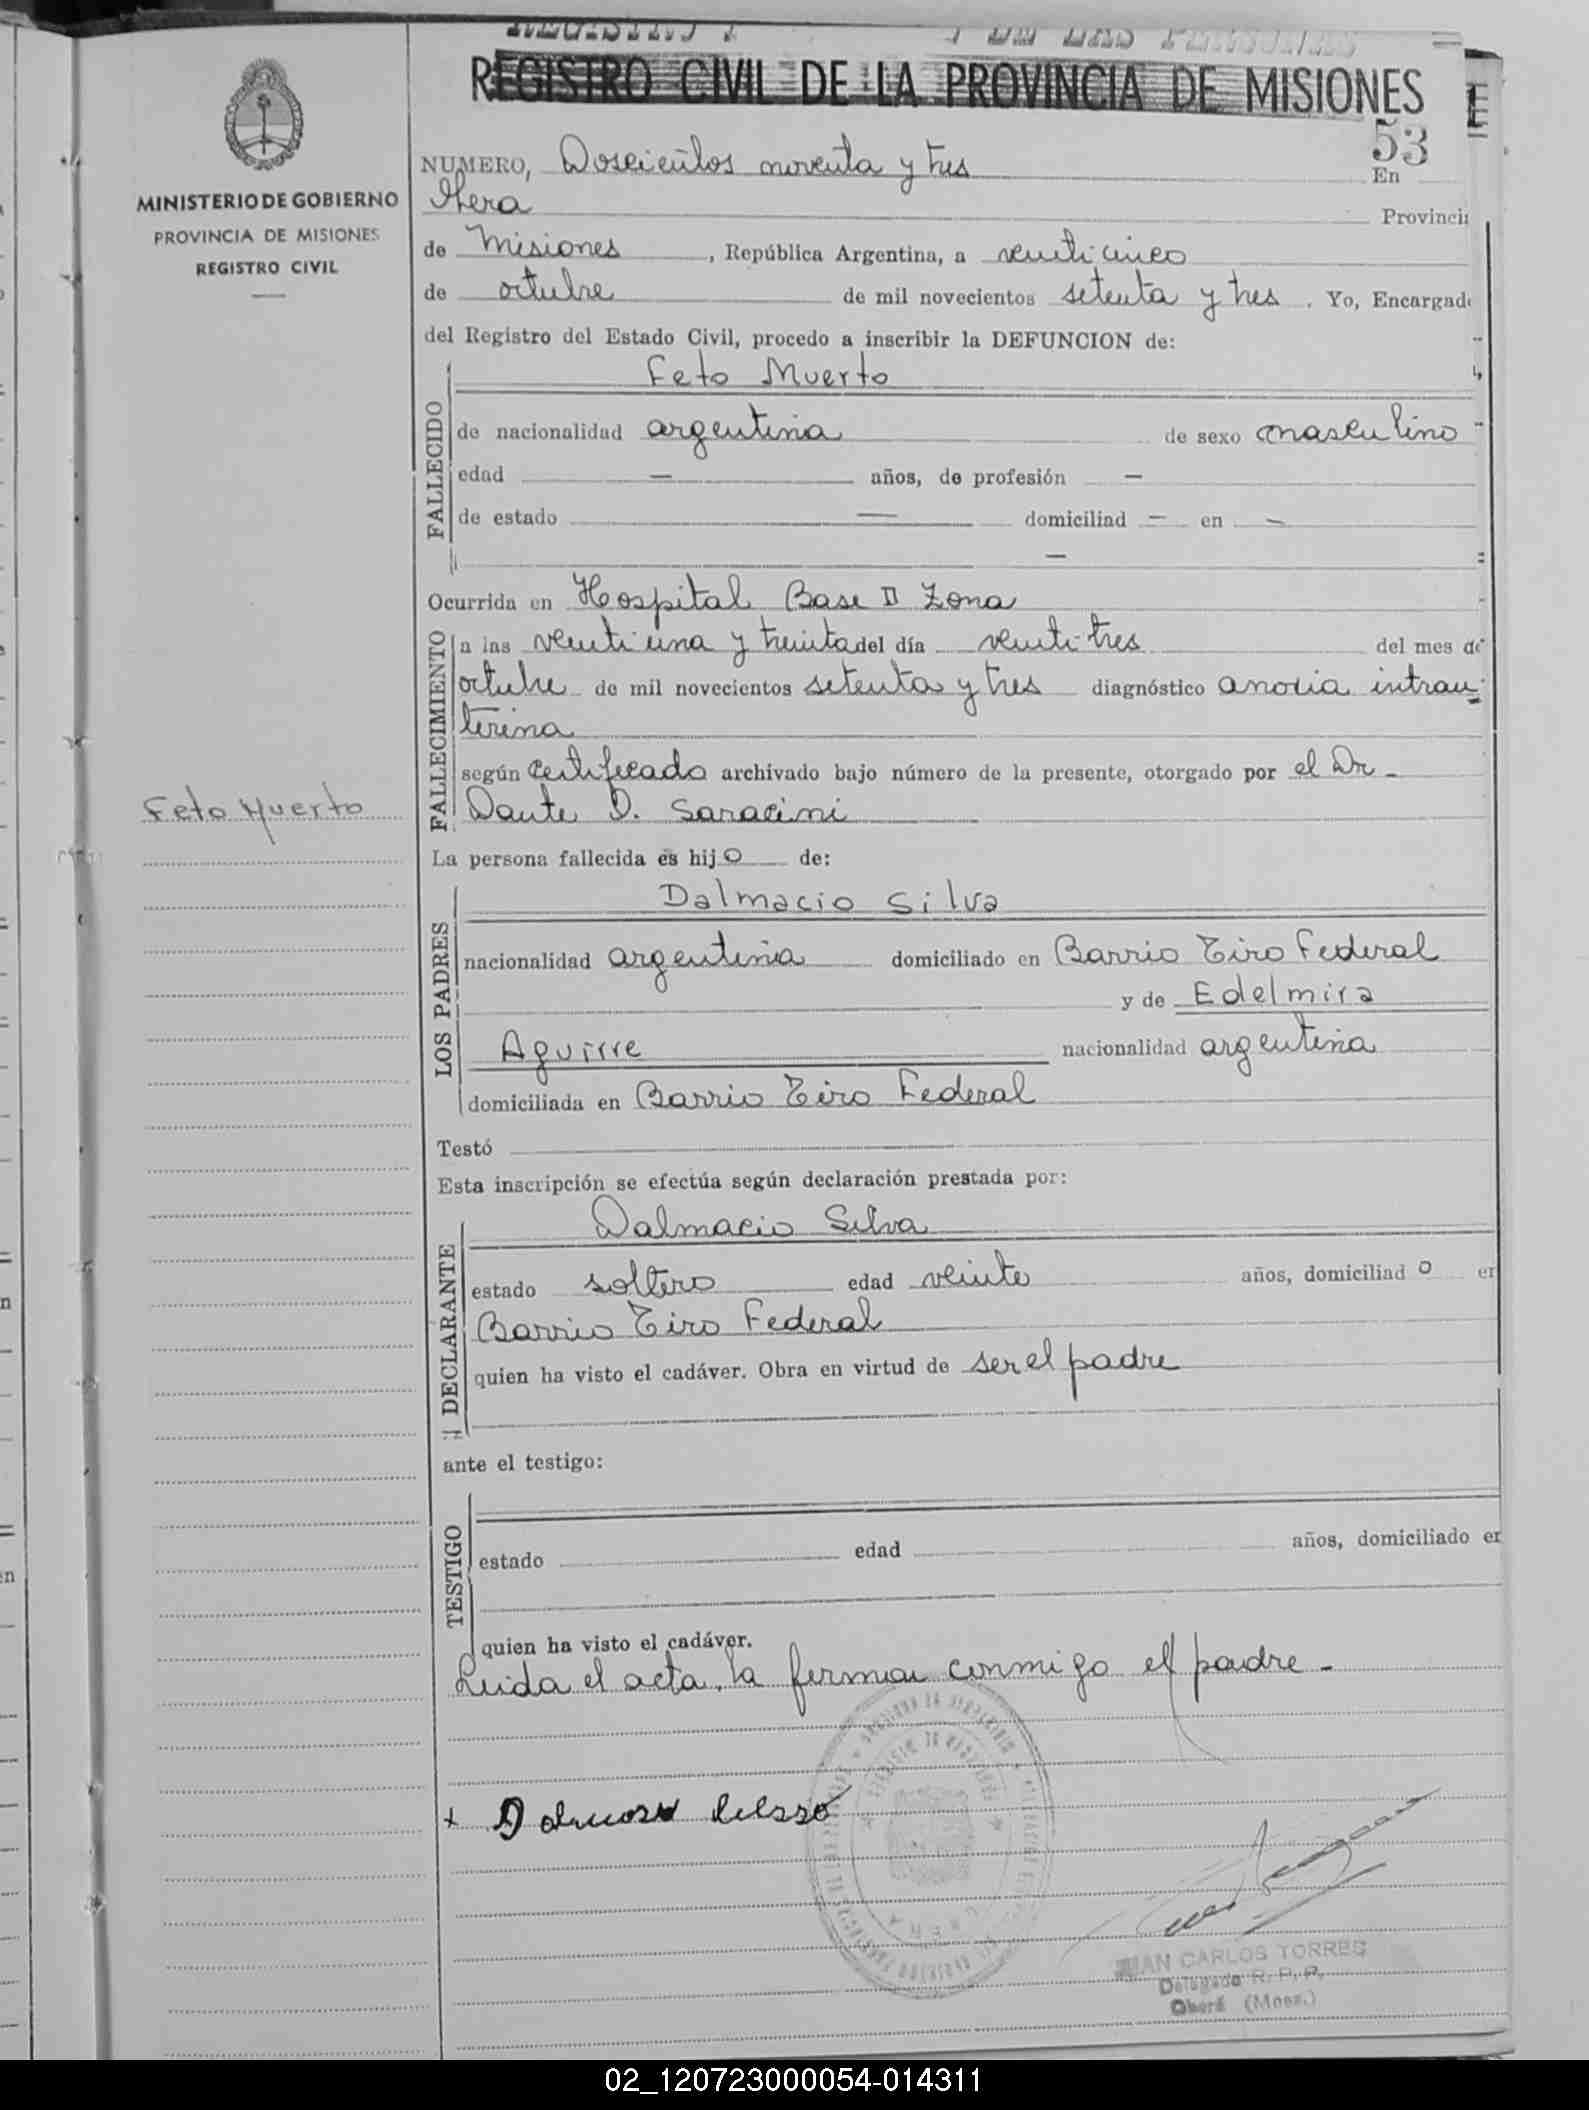 REGISTRO CIVIL DE LA PROVINCIA DE MISIONES
53
MINISTERIO DE GOBIERNO
PROVINCIA DE MISIONES
REGISTRO CIVIL
NUMERO, Doscientos noventa y tres En
Provinci
de Misiones, República Argentina, a venticinco
de octubre de mil novecientos setenta y tres. Yo, Encargad
del Registro del Estado Civil, procedo a inscribir la DEFUNCION de:
FALLECIDO
Feto Muerto
de nacionalidad argentina de sexo masculino
edad — años, de profesión —
de estado — domiciliad — en —
—
Ocurrida en Hospital Base II Zona
FALLECIMIENTO
a las ventiuna y treinta del día ventitres del mes de
octubre de mil novecientos setenta y tres diagnóstico anoxia intrau-
terina
según certificado archivado bajo número de la presente, otorgado por el Dr.
Dante D. Saracini
Feto Muerto
La persona fallecida es hijo de:
LOS PADRES
Dalmacio Silva
nacionalidad argentina domiciliado en Barrio Tiro Federal
y de Edelmira
Aguirre nacionalidad argentina
domiciliada en Barrio Tiro Federal
Testó
Esta inscripción se efectúa según declaración prestada por:
DECLARANTE
Dalmacio Silva
estado soltero edad veinte años, domiciliado er
Barrio Tiro Federal
quien ha visto el cadáver. Obra en virtud de ser el padre
ante el testigo:
TESTIGO
estado edad años, domiciliado er
quien ha visto el cadáver.
Leida el acta, la firma conmigo el padre -
JUAN CARLOS TORRES
Delegado R. P. P.
Oberá (Mnes.)
02_120723000054-014311